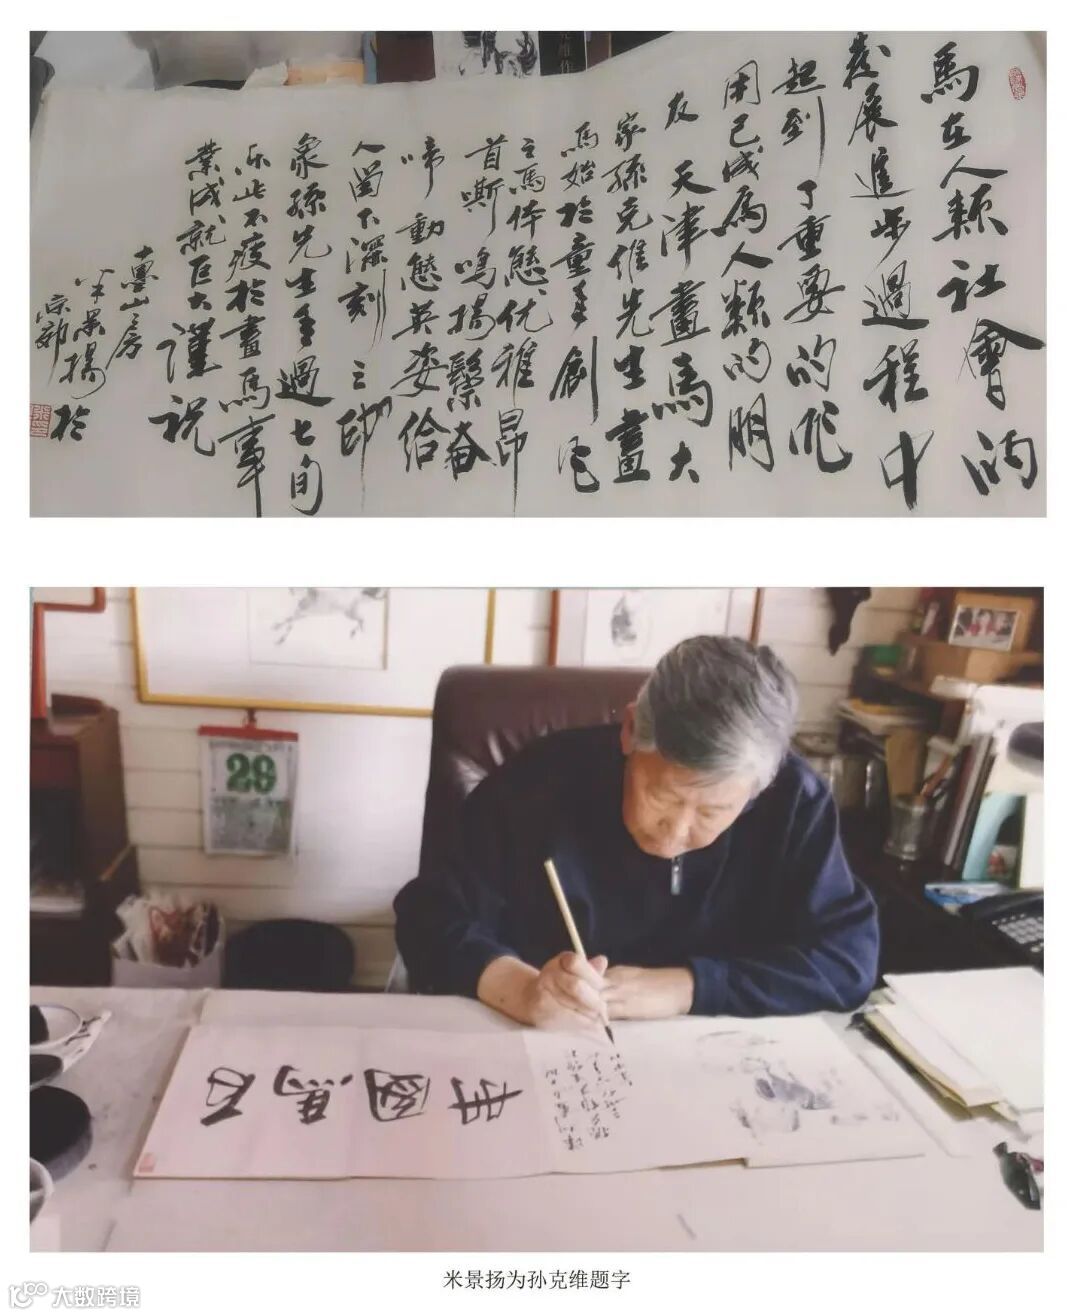 馬在人類社會的
發展進步過程中
起到了重要的作
用已成爲人類的朋
友 天津畫馬大
家孫克維先生畫
馬始於童年創作
之馬体態优雅昂
首嘶鳴揚鬃奮
啼動態英姿给
人留下深刻之印
象孫先生年過七旬
乐此不疲於畫馬事
業成就巨大謹祝
山房
米景揚於
京郊
百馬圖
米景扬为孙克维题字
大数跨境